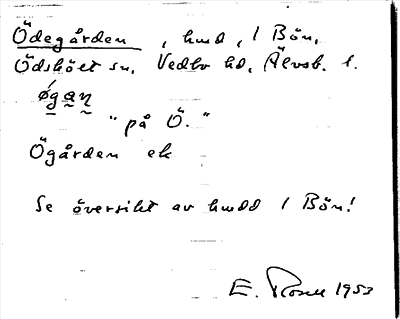 Ödegården, hmd, 1 Bön,
Ödskölt sn, Vedbo hd, Älvsb. l.
øgan
"på Ö."
Ögården ek
Se översikt av hmdd 1 Bön!
E. Rosell 1953